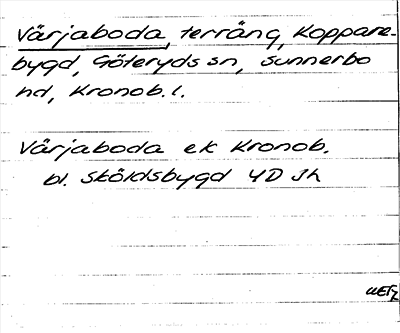 Värjaboda, terräng, Koppare-
bygd, Göteryds sn, Sunnerbo
hd, Kronob. l.
Värjaboda ek Kronob.
bl. Sköldsbygd 4D Jh